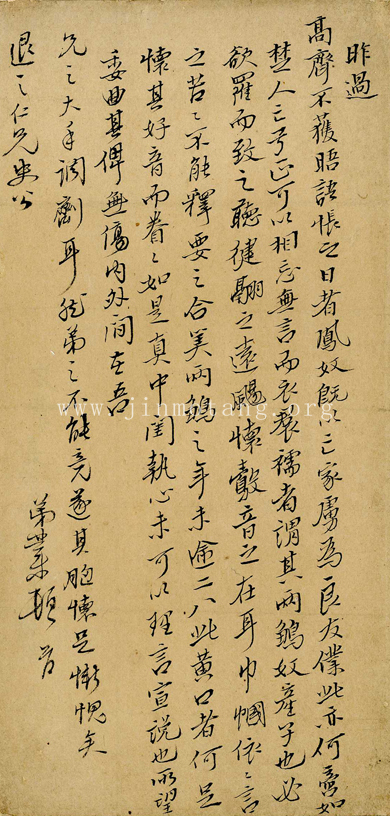 昨過
高齋不獲晤語悵之日者鳳奴既以亡家虜為良友僕此亦何啻如
楚人亡弓正可以相忘無言而衣裂襦者謂其兩鶵奴產子也必
欲羅而致之聽健翮之遠颺懷鷇音之在耳巾幗依〻言
之苦〻不能釋要之合美兩鶵之年未途二八此黃口者何足
懷其好音而眷〻如是真中閨執心未可以理言宣說也所望
委曲其俾無傷內外間在吾
兄之大手調劑耳然弟之不能竟遂其胸懷足慚愧矣
弟業頓首
退之仁兄史公
www.jinmotang.org